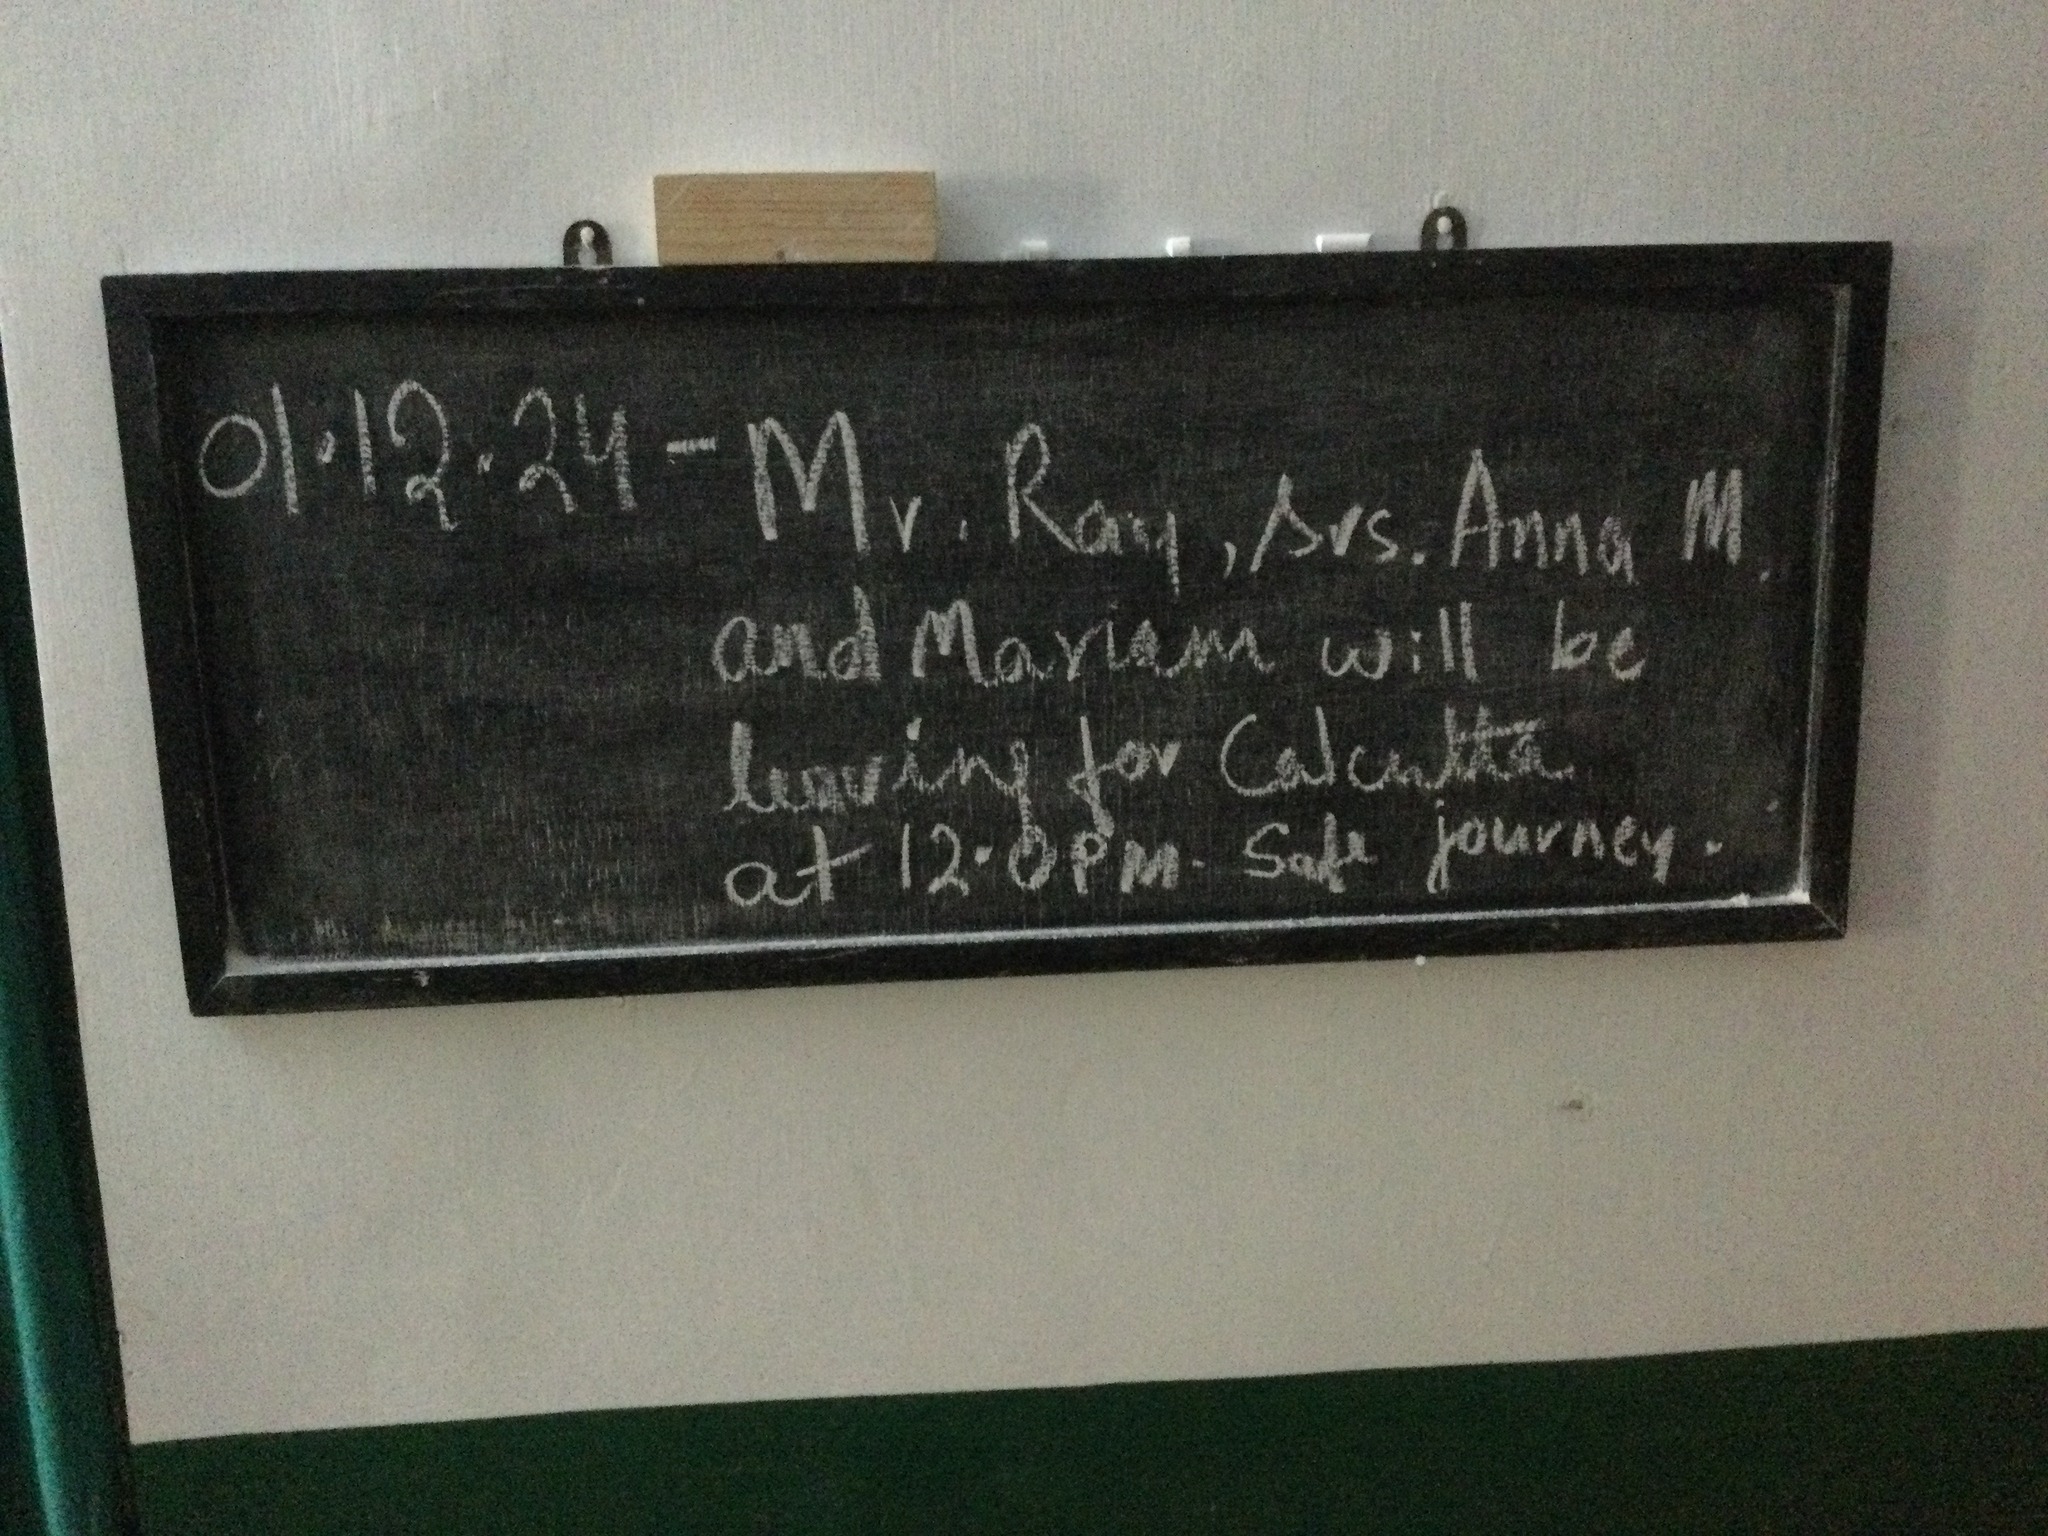 01.12.24 - Mr. Ray, srs. Anna M.
and Mariam will be
leaving for Calcutta
at 12.0PM. Safe journey.